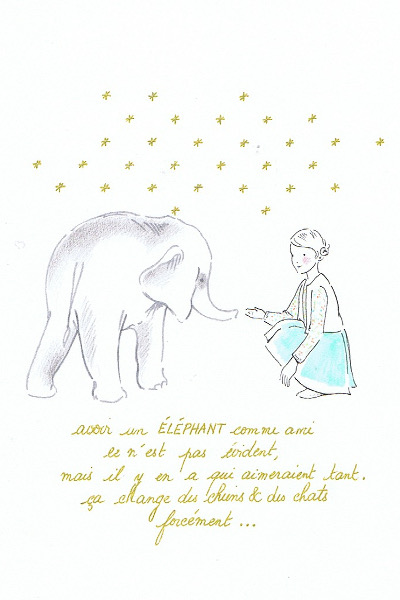 avoir un ÉLÉPHANT comme ami
ce n'est pas évident,
mais il y en a qui aimeraient tant.
ça change des chiens & des chats
forcément ...